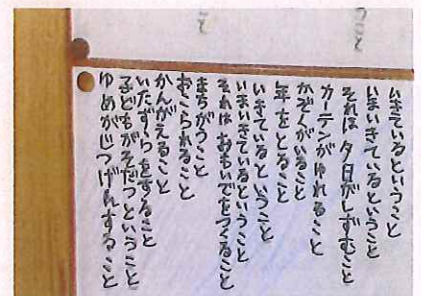 いきているということ
いまいきているということ
それは夕日がしずむこと
カーテンがゆれること
かぞくがいること
年をとること
いきているということ
いまいきているということ
それはおもいでをつくること
まちがうこと
おこられること
かんがえること
いたずらをすること
子どもがそだつということ
ゆめがじつげんすること